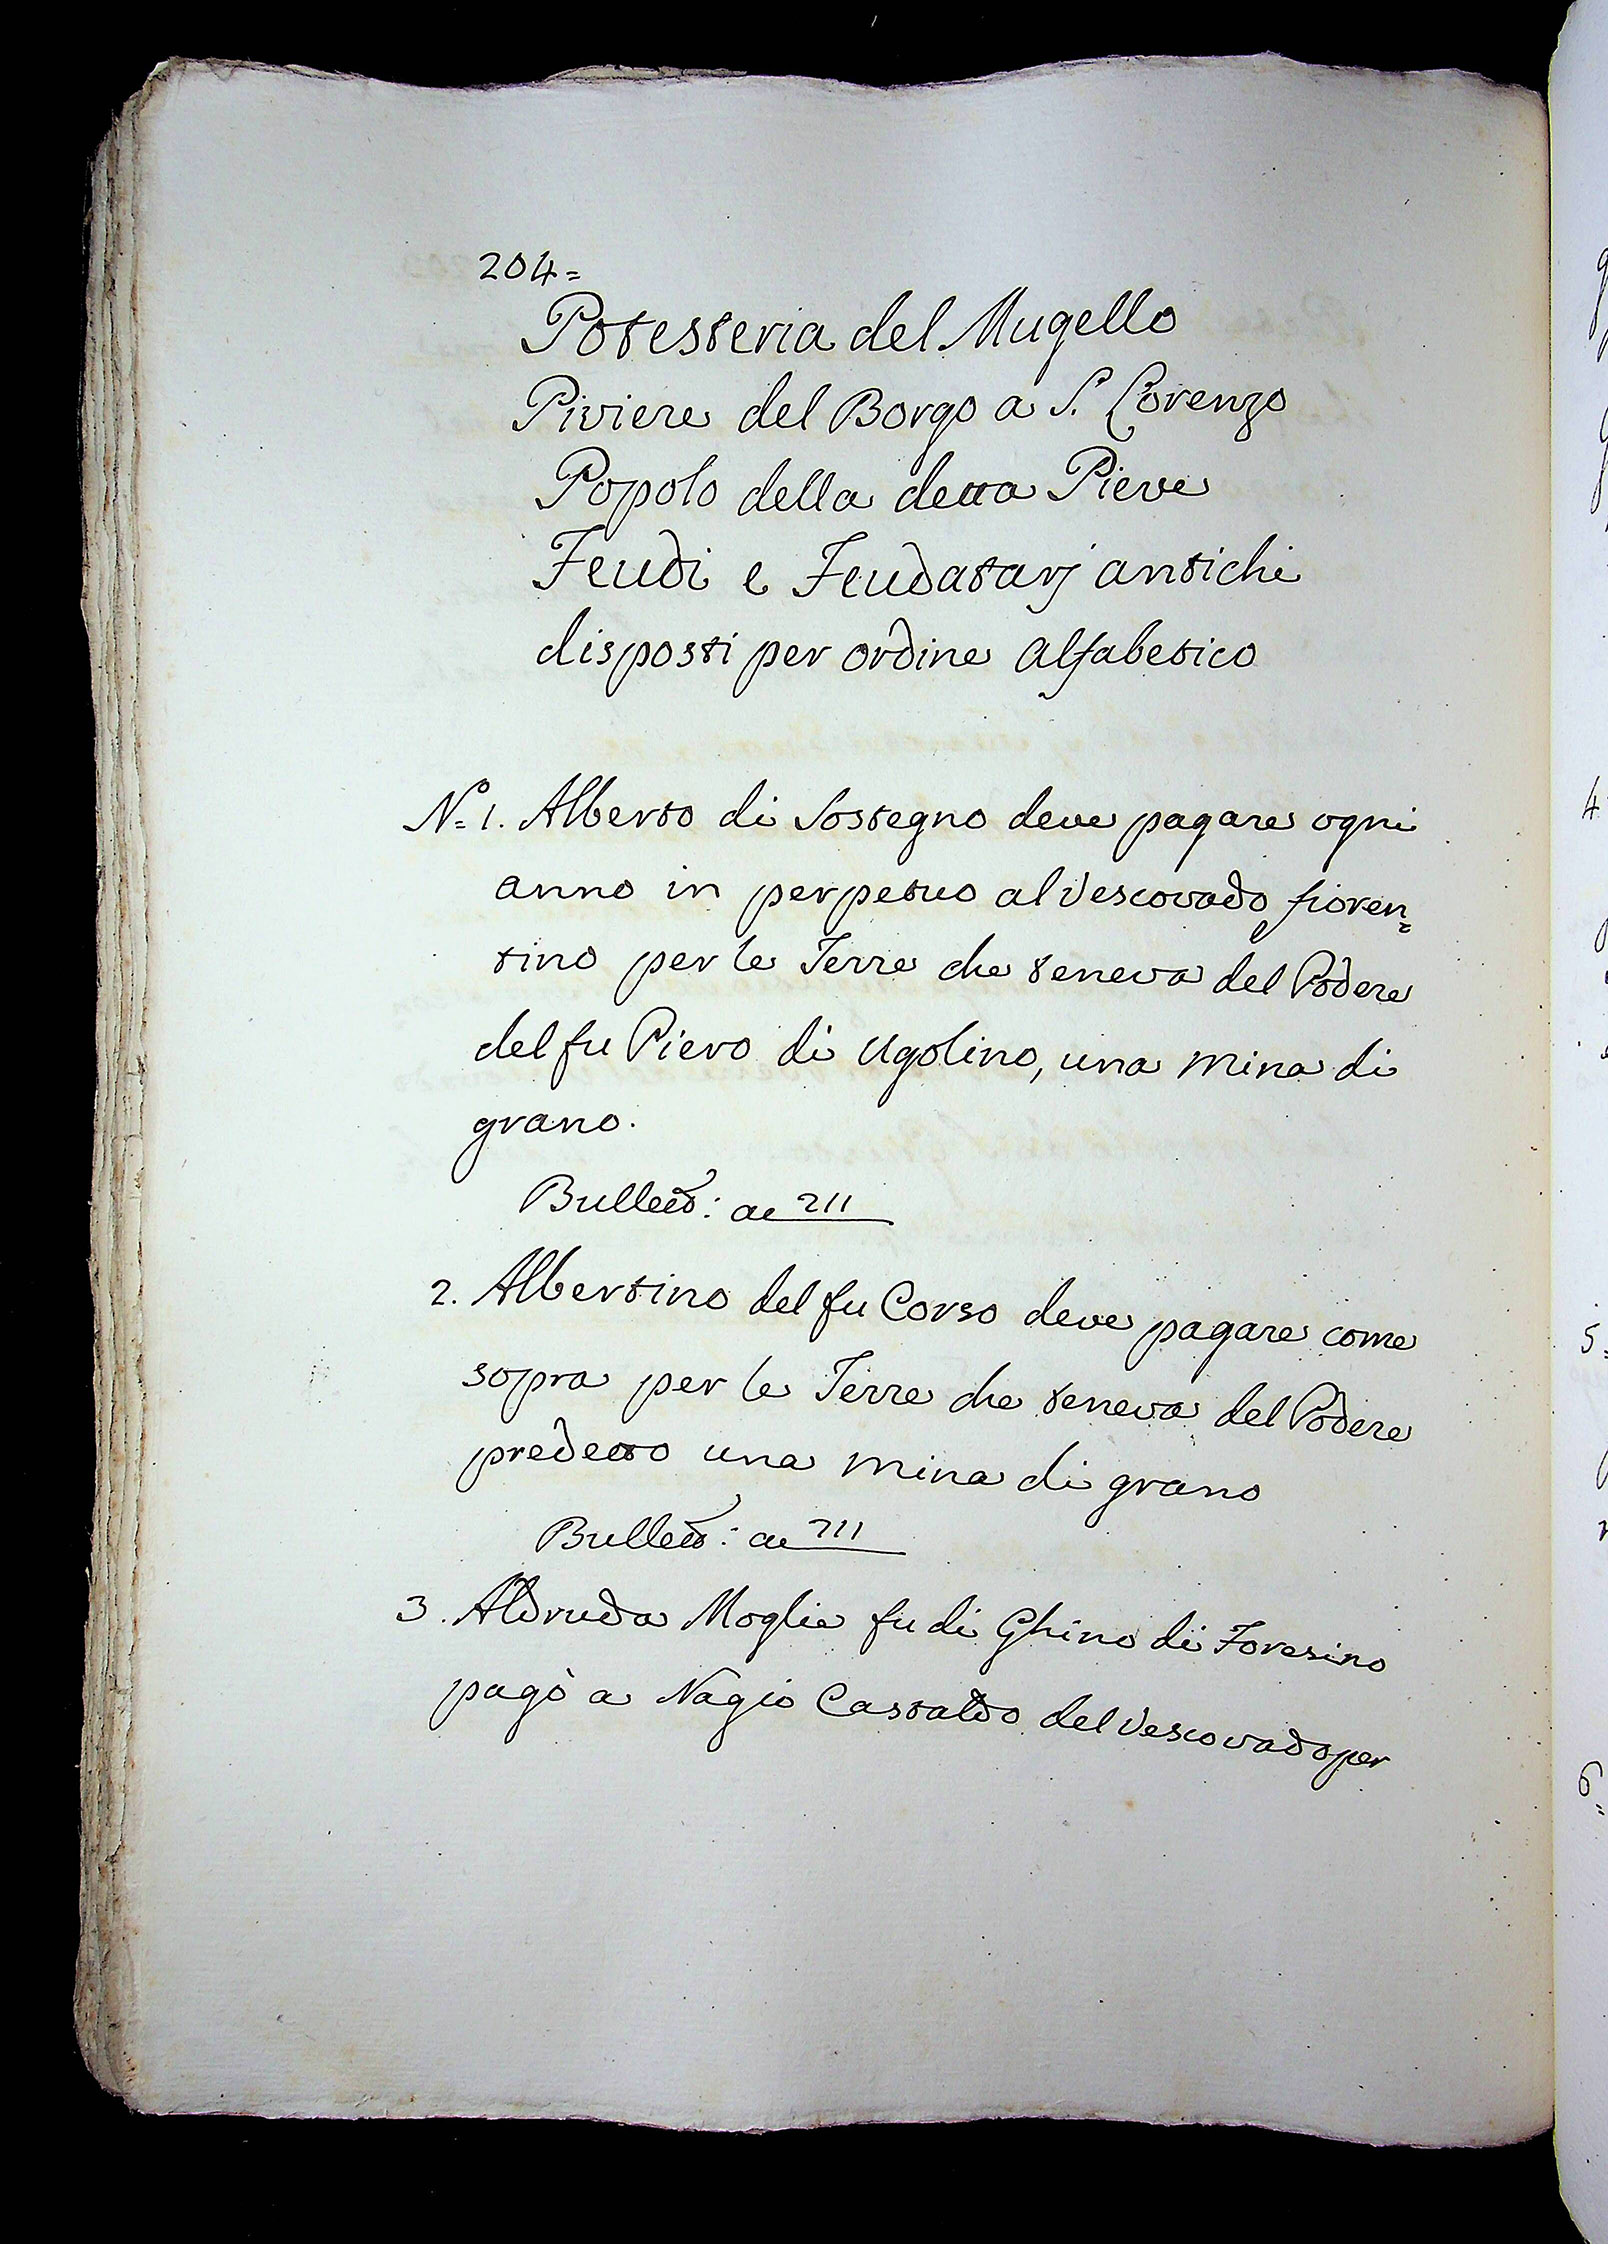 204=
Potesteria del Mugello
Piviere del Borgo a S. Lorenzo
Popolo della detta Pieve
Feudi e Feudatarj antichi
disposti per ordine Alfabetico
No. 1. Alberto di Sostegno deve pagare ogni
anno in perpetuo al Vescovado fioren=
tino per le Terre che teneva del Podere
del fu Piero di Ugolino, una mina di
grano.
Bullett: a 211
2. Albertino del fu Corso deve pagare come
sopra per le Terre che teneva del Podere
predetto una mina di grano
Bullett: a 211
3. Aldruda Moglie fu di Ghino di Foresino
pagò a Nagio Castaldo del Vescovado per
4
5=
6=